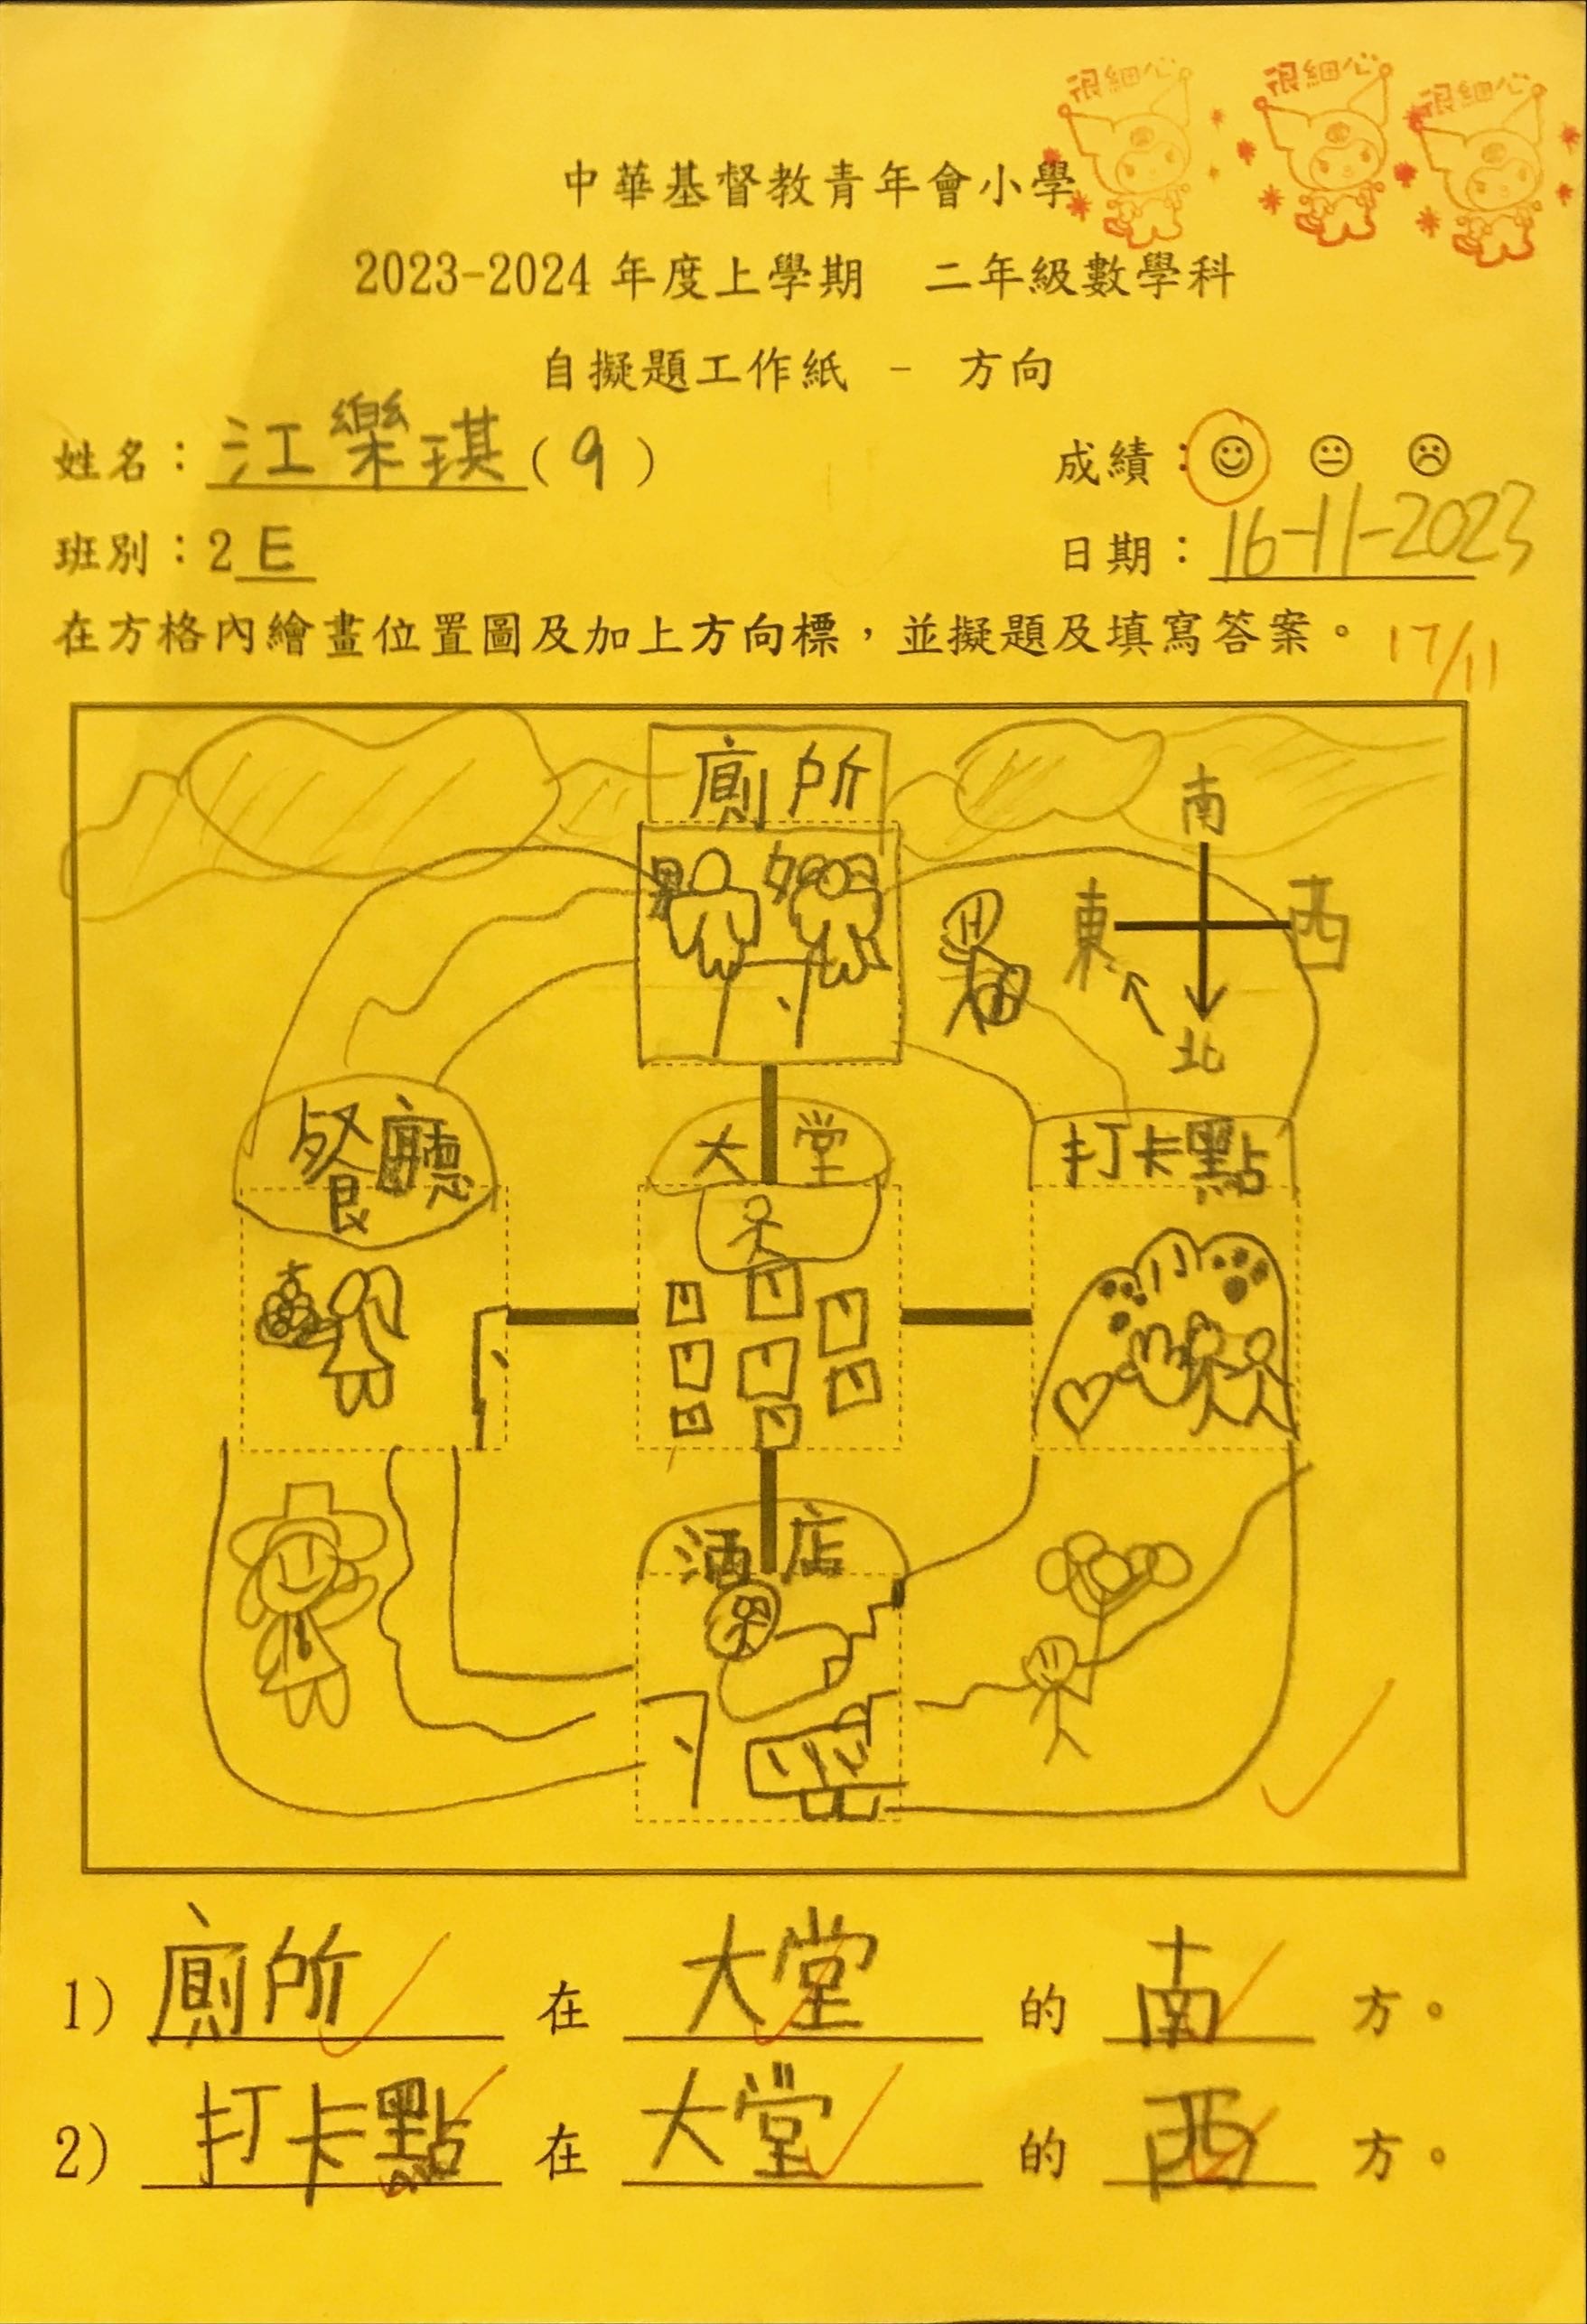 很細心 很細心 很細心
中華基督教青年會小學
2023-2024 年度上學期 二年級數學科
自擬題工作紙 - 方向
姓名：江樂琪（9） 成績：
班別：2E 日期：16-11-2023
在方格內繪畫位置圖及加上方向標，並擬題及填寫答案。 17/11
廁所
南
男 女
東 西
北
餐廳 大堂 打卡點
酒店
1) 廁所 在 大堂 的 南 方。
2) 打卡點 在 大堂 的 西 方。